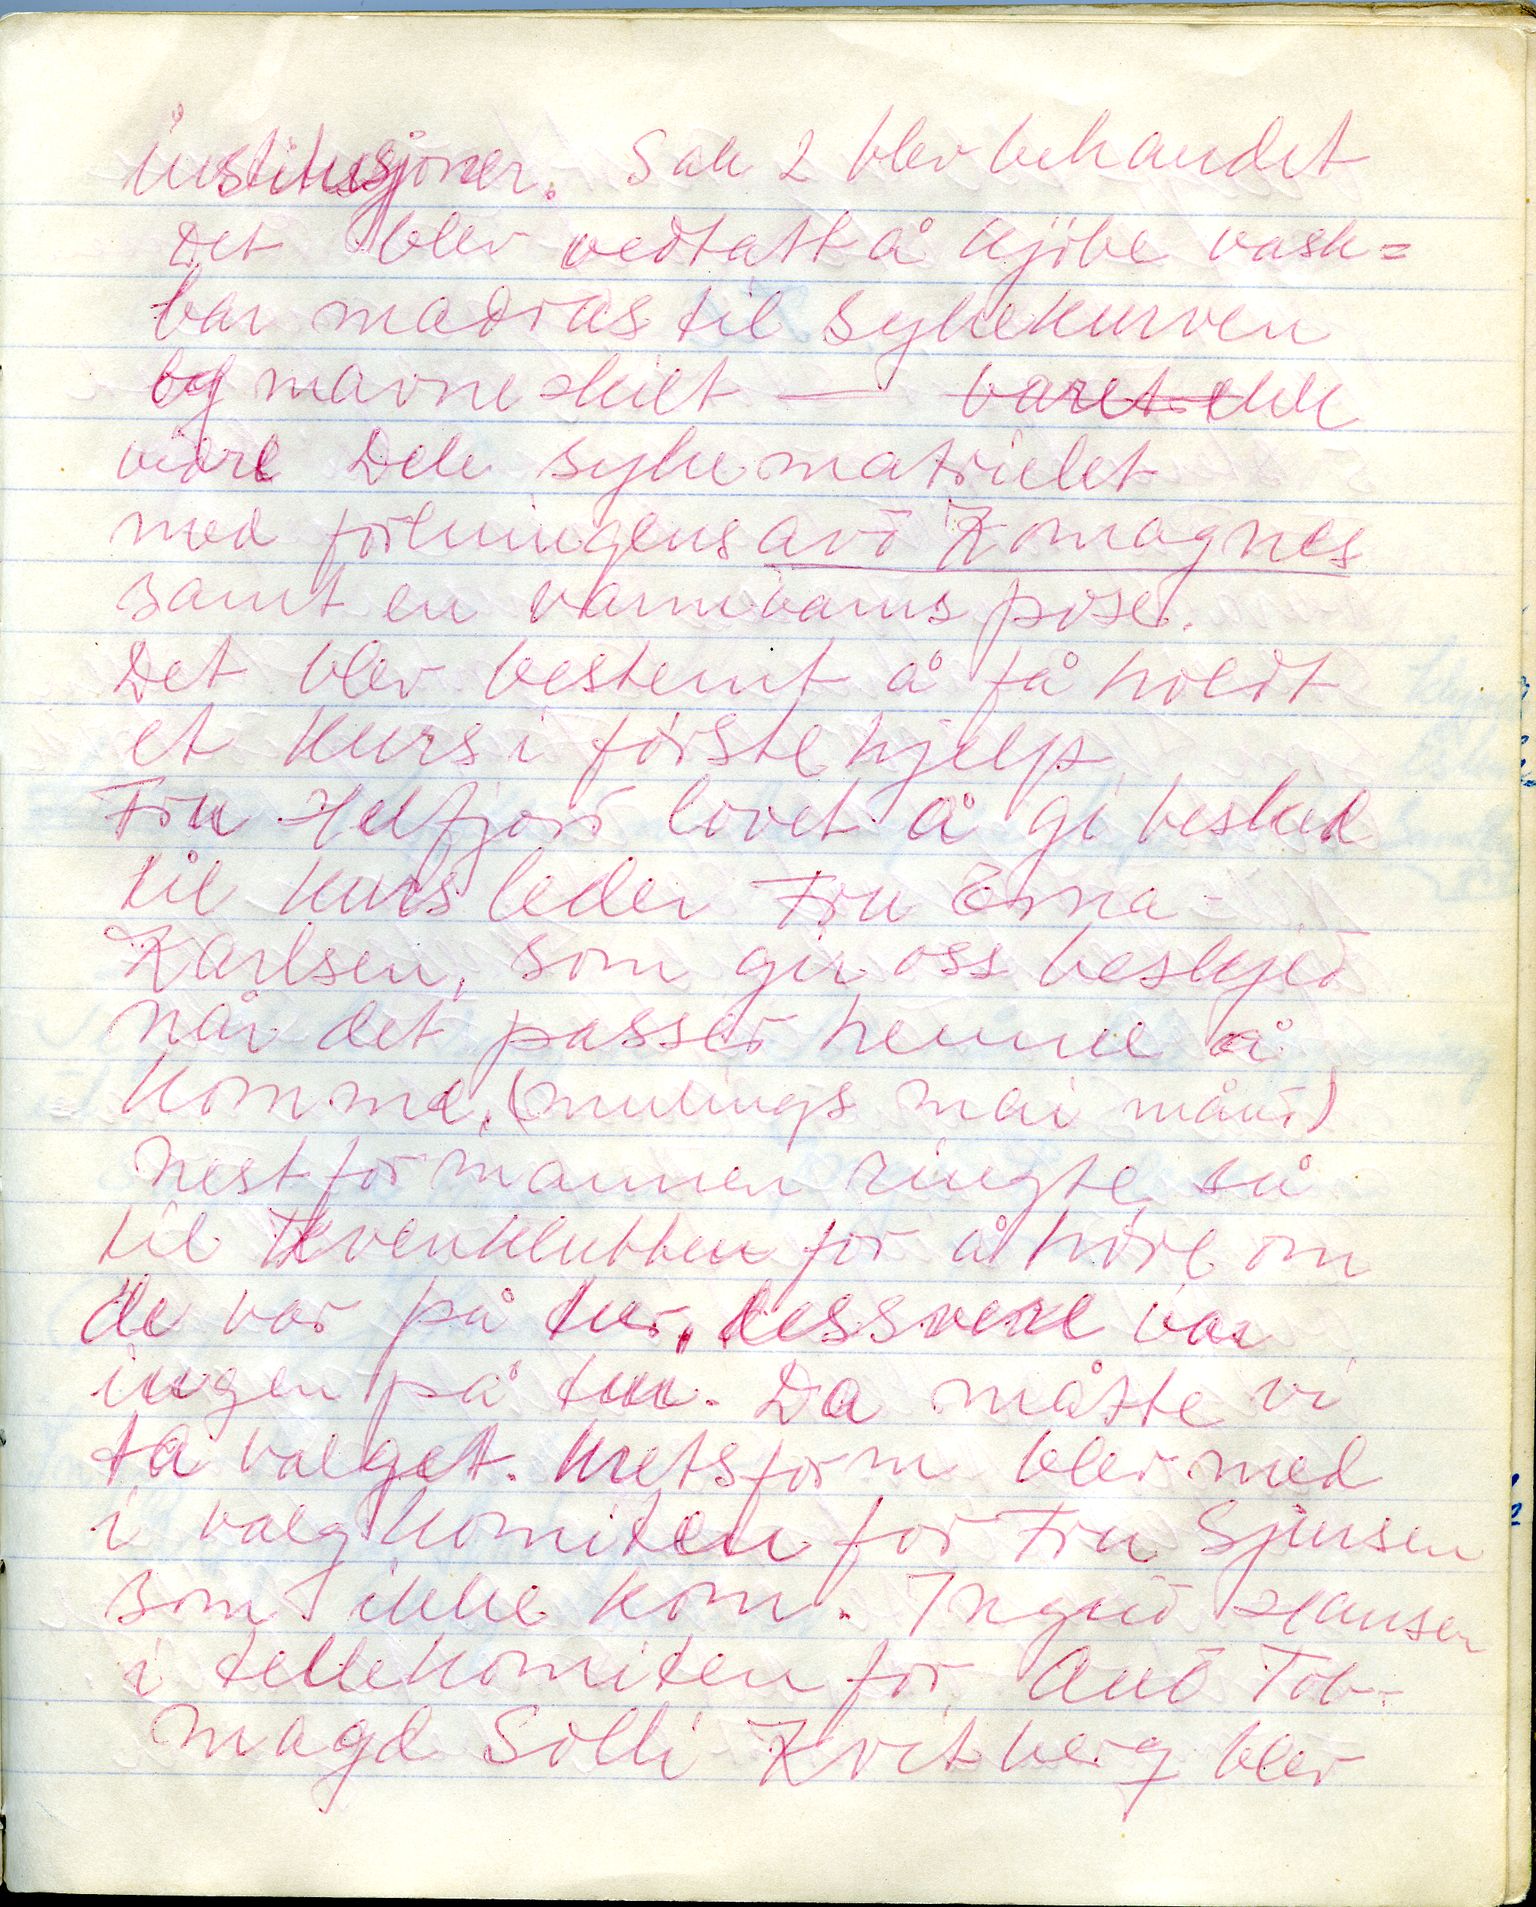 institusjoner. Sak 2 blev behandet
Det blev vedtatt å kjöbe vask=
bar madras til sykekurven
og mavneskilt — baret ekk
vidre Dek sykematrielet
med foreningens
samt en varmivarms pose.
Det blev bestemt å få holdt
et kurs i förstehjelp
Fru Helfjord lovet å gi besked
til kurs leder Fru Erna -
Karlsen, som gir oss beskjed
når det passer henne å
komme. (mulings mai månd)
nestformannen ringte så
til Kvenklubben for å höre om
de var på tur, dessvere var
ingen på tur. Da måtte vi
ta valget. Kretsform blev med
i valgkomiteen for Fru Sjursen
som ikke kom. Ingrid Hansen
i tellekomiteen for Aud Tob-
Magd Solli Kvitberg blev